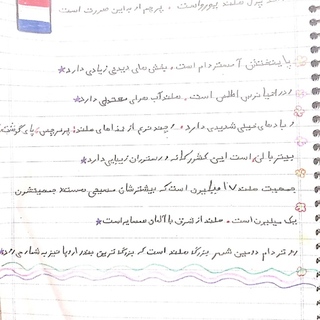 پول هلند یورو است . پرچم از به این صورت است
پایتختش آمستردام است . بخش های دیدنی زیادی دارد
رود اقیانوس اطلس است . هلند آب هوای معتدلی دارد
و بادهای خیلی شدیدی دارد . چند نوع از غذاهای هلند: پوره چین، پای گوشت
بیتر بالن، است این کشور کافه و رستوران زیبایی دارد
جمعیت هلند ۱۷ میلیون است که بیشترشان مسیحی هستند جمعیتشون
یک میلیون است . هلند از شرق با آلمان همسایه است
روتردام دومین شهر بزرگ هلند است که بزرگ ترین بندر اروپا نیز به شمار می رود